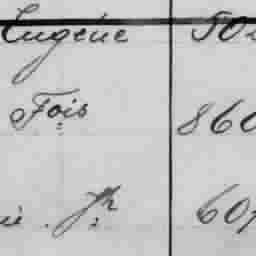 Eugène 50
Fois 860
Jh 60